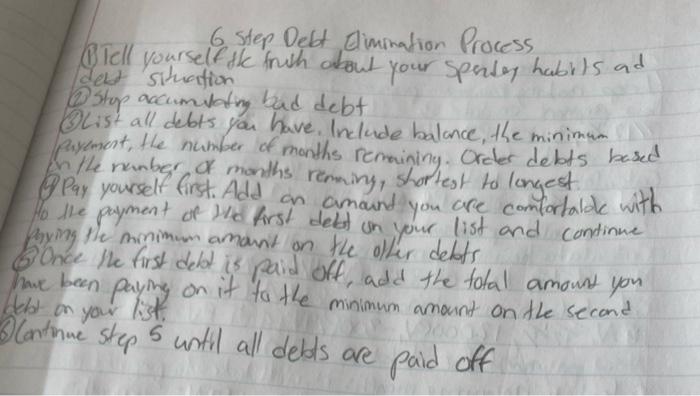 6 Step Debt Elimination Process
① Tell yourself the truth about your spending habits ad
debt situation
② Stop accumulating bad debt
③ List all debts you have. Include balance, the minimum
Payment, the number of months remaining. Order debts based
on the number of months remaing, shortest to longest
④ Pay yourself first. Add an amount you are comfortable with
to the payment of the first debt on your list and continue
Paying the minimum amount on the other debts
⑤ Once the first debt is paid off, add the total amount you
have been paying on it to the minimum amount on the second
debt on your list.
⑥ Continue step 5 until all debts are paid off